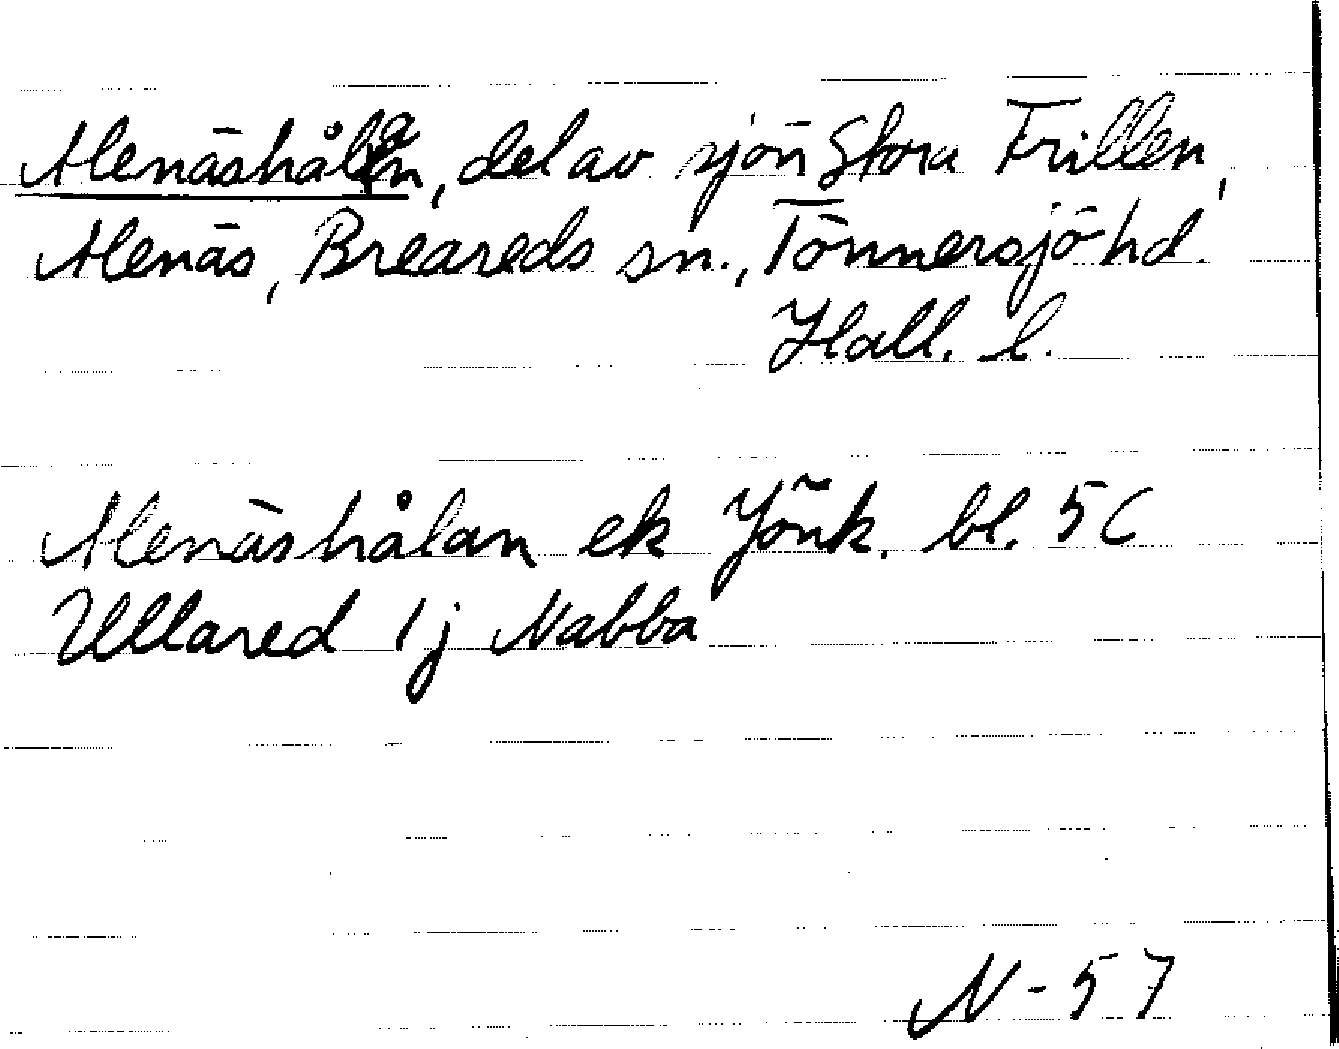 Alenäshålan, del av sjön Stora Frillen,
Alenäs, Breareds sn., Tönnersjö hd.
Hall. l.
Alenäshålan ek Jönk. bl. 5C
Ullared 1j Nabba
N-57